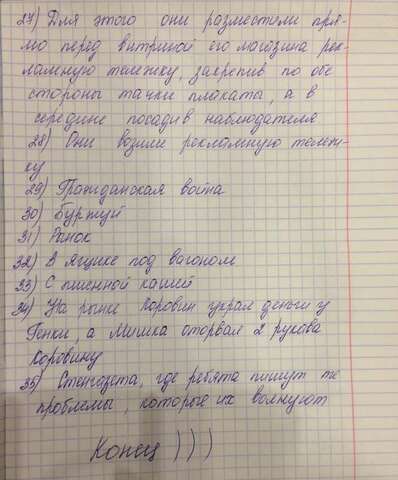 27) Для этого они разместели пря-
мо перед витриной его магазина рек-
ламную тележку, закрепив по обе
стороны тачки плакаты, а в
середине посадив наблюдателя
28) Они возили рекламную тележ-
ку
29) Гражданская война
30) Буржуй
31) Рынок
32) В ящике под вагоном
33) С пшенной кашей
34) На рынке Коровин украл деньги у
Генки, а Мишка оторвал 2 рукова
Коровину
35) Стенгозета, где ребята пишут те
проблемы, которые их волнуют
Конец )))